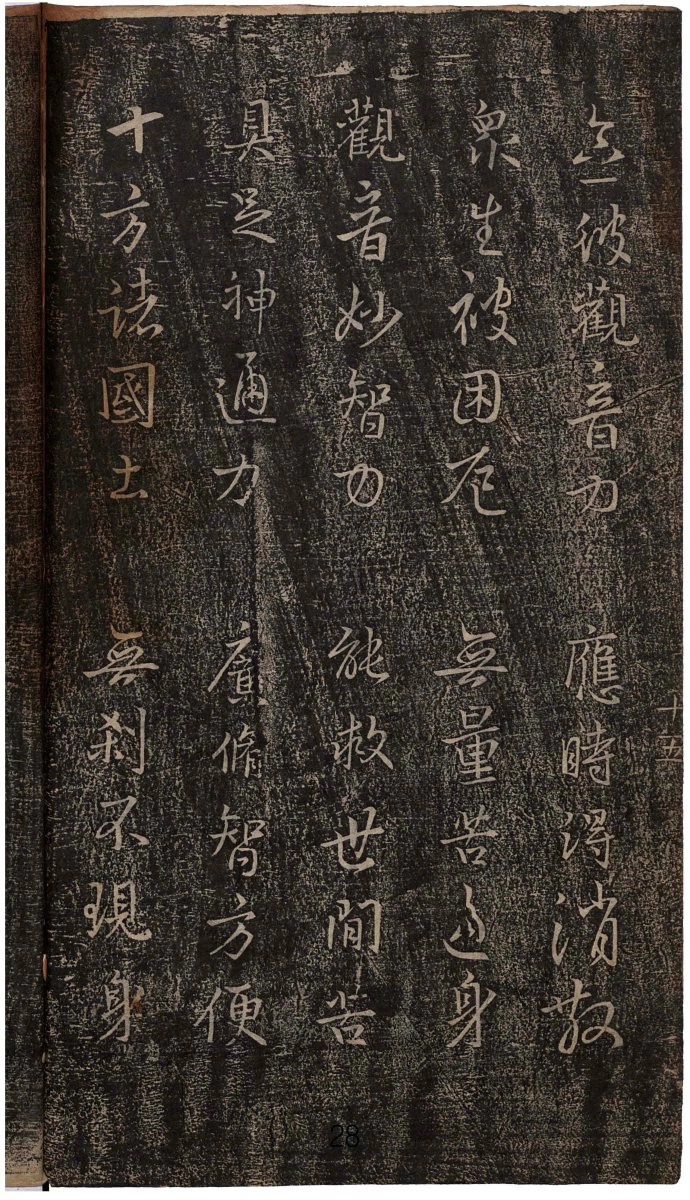 念彼觀音力 應時得消散
衆生被困厄 無量苦逼身
觀音妙智力 能救世間苦
具足神通力 廣修智方便
十方諸國土 無刹不現身
十五
28